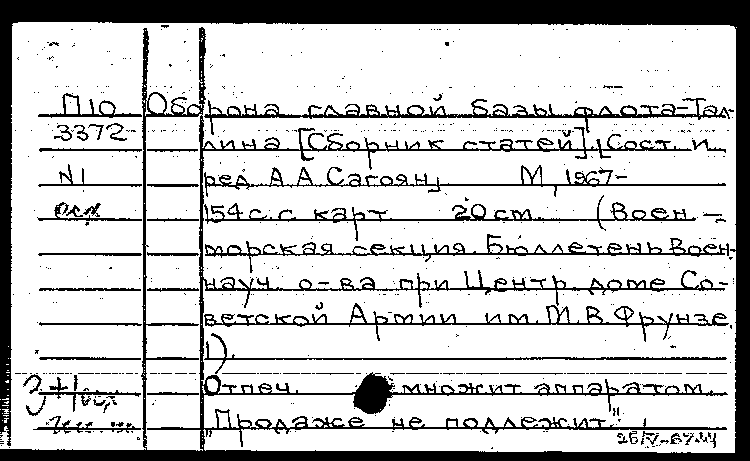 П10 Оборона главной базы флота-Тал-
3372 лина [Сборник статей]. [Сост. и
N1 ред. А.А. Сагоян] М, 1967-
осн. 154 с. с карт. 20 см. (Воен.-
морская секция. Бюллетень Воен-
науч. о-ва при Центр. доме Со-
ветской Армии им. М.В. Фрунзе.
1).
3+1 Отпеч. множит. аппаратом.
"Продаже не подлежит".